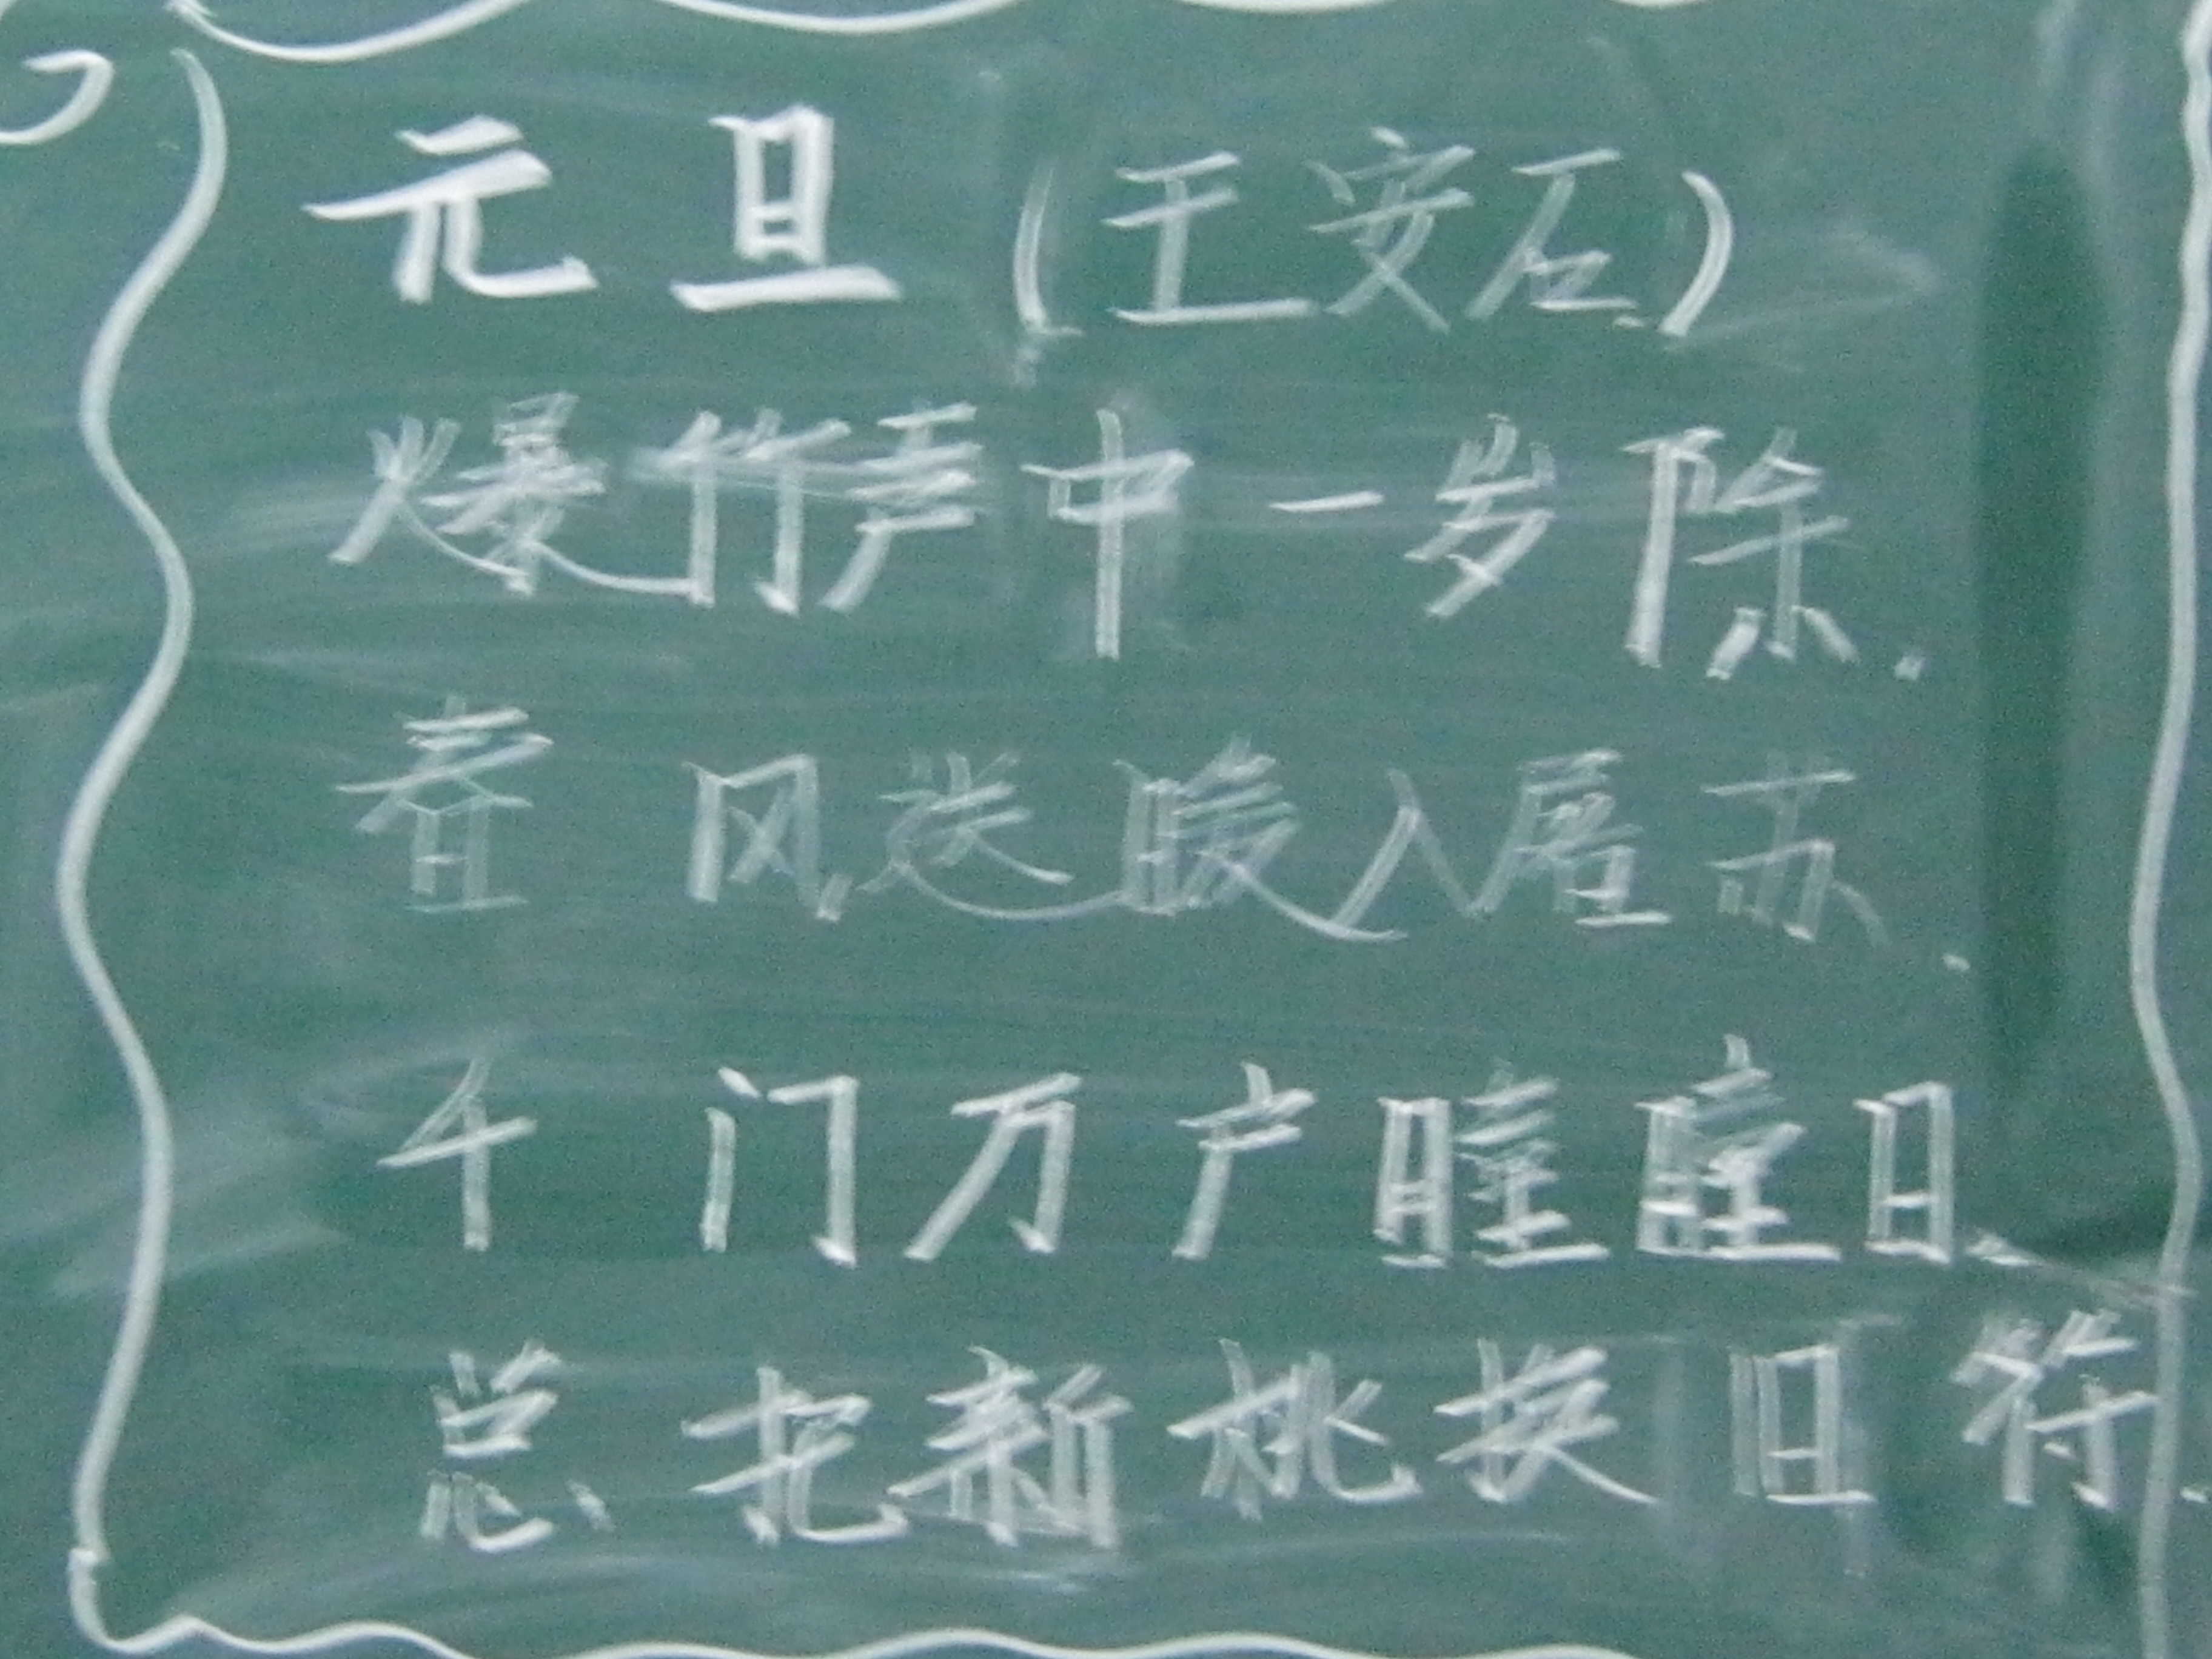 元旦(王安石)
爆竹声中一岁除.
春风送暖入屠苏.
千门万户曈曈日、
总把新桃换旧符.